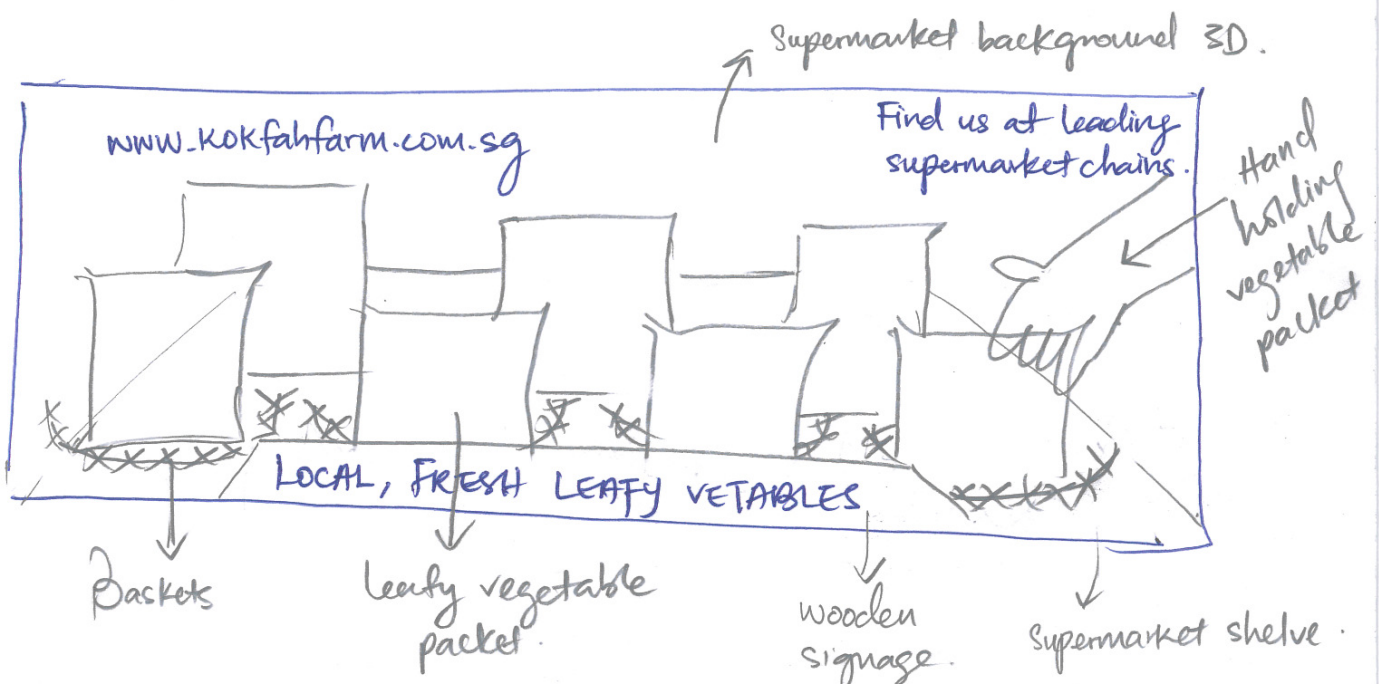 Supermarket background 3D.
www.kokfahfarm.com.sg
Find us at leading
supermarket chains.
Hand
holding
vegetable
packet
LOCAL, FRESH LEAFY VETABLES
Baskets
leafy vegetable
packet.
wooden
signage.
Supermarket shelve.